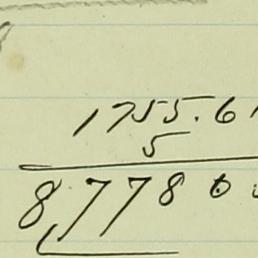 1755.61
5
8,778 05